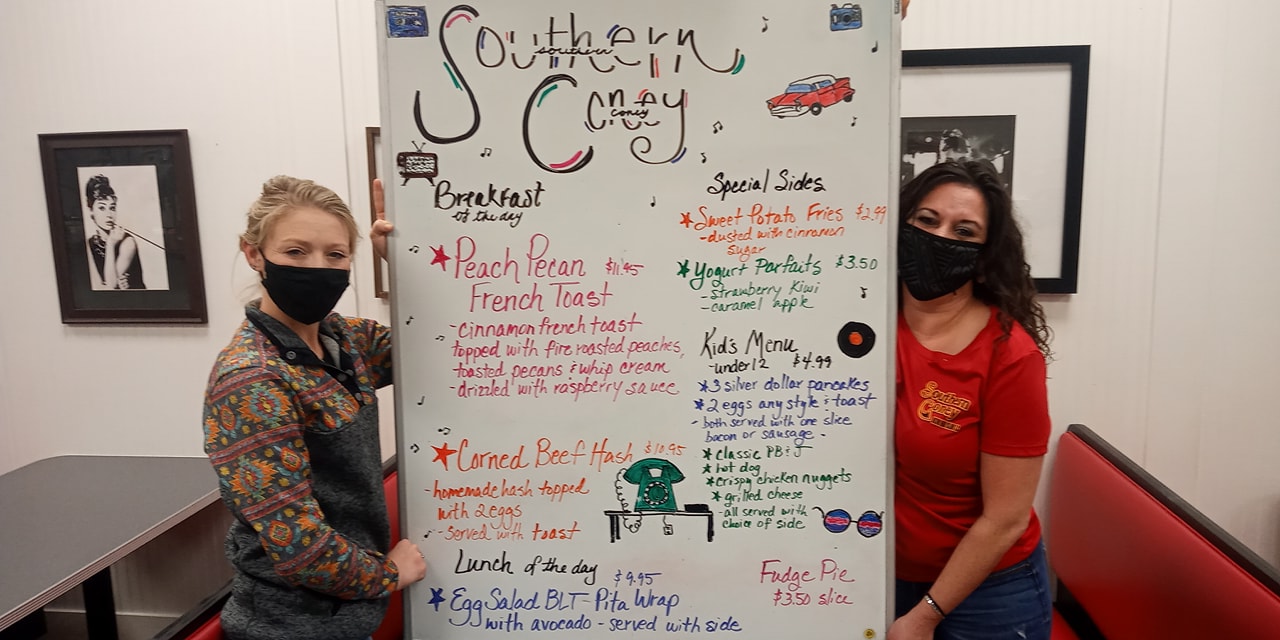 Southern
southern
Coney
coney
Breakfast
of the day
Peach Pecan $11.45
French Toast
-cinnamon french toast
topped with fire roasted peaches,
toasted pecans & whip cream
-drizzled with raspberry sauce
Corned Beef Hash $10.95
-homemade hash topped
with 2 eggs
-served with toast
Lunch of the day
$9.95
Egg Salad BLT-Pita Wrap
with avocado - served with side
Special Sides
Sweet Potato Fries $2.99
-dusted with cinnamon
sugar
Yogurt Parfaits $3.50
-strawberry kiwi
-caramel apple
Kid's Menu
-under 12 $4.99
*3 silver dollar pancakes
*2 eggs any style & toast
- both served with one slice
bacon or sausage -
*classic PB&J
*hot dog
*crispy chicken nuggets
*grilled cheese
-all served with
choice of side
Fudge Pie
$3.50 slice
Southern
Coney